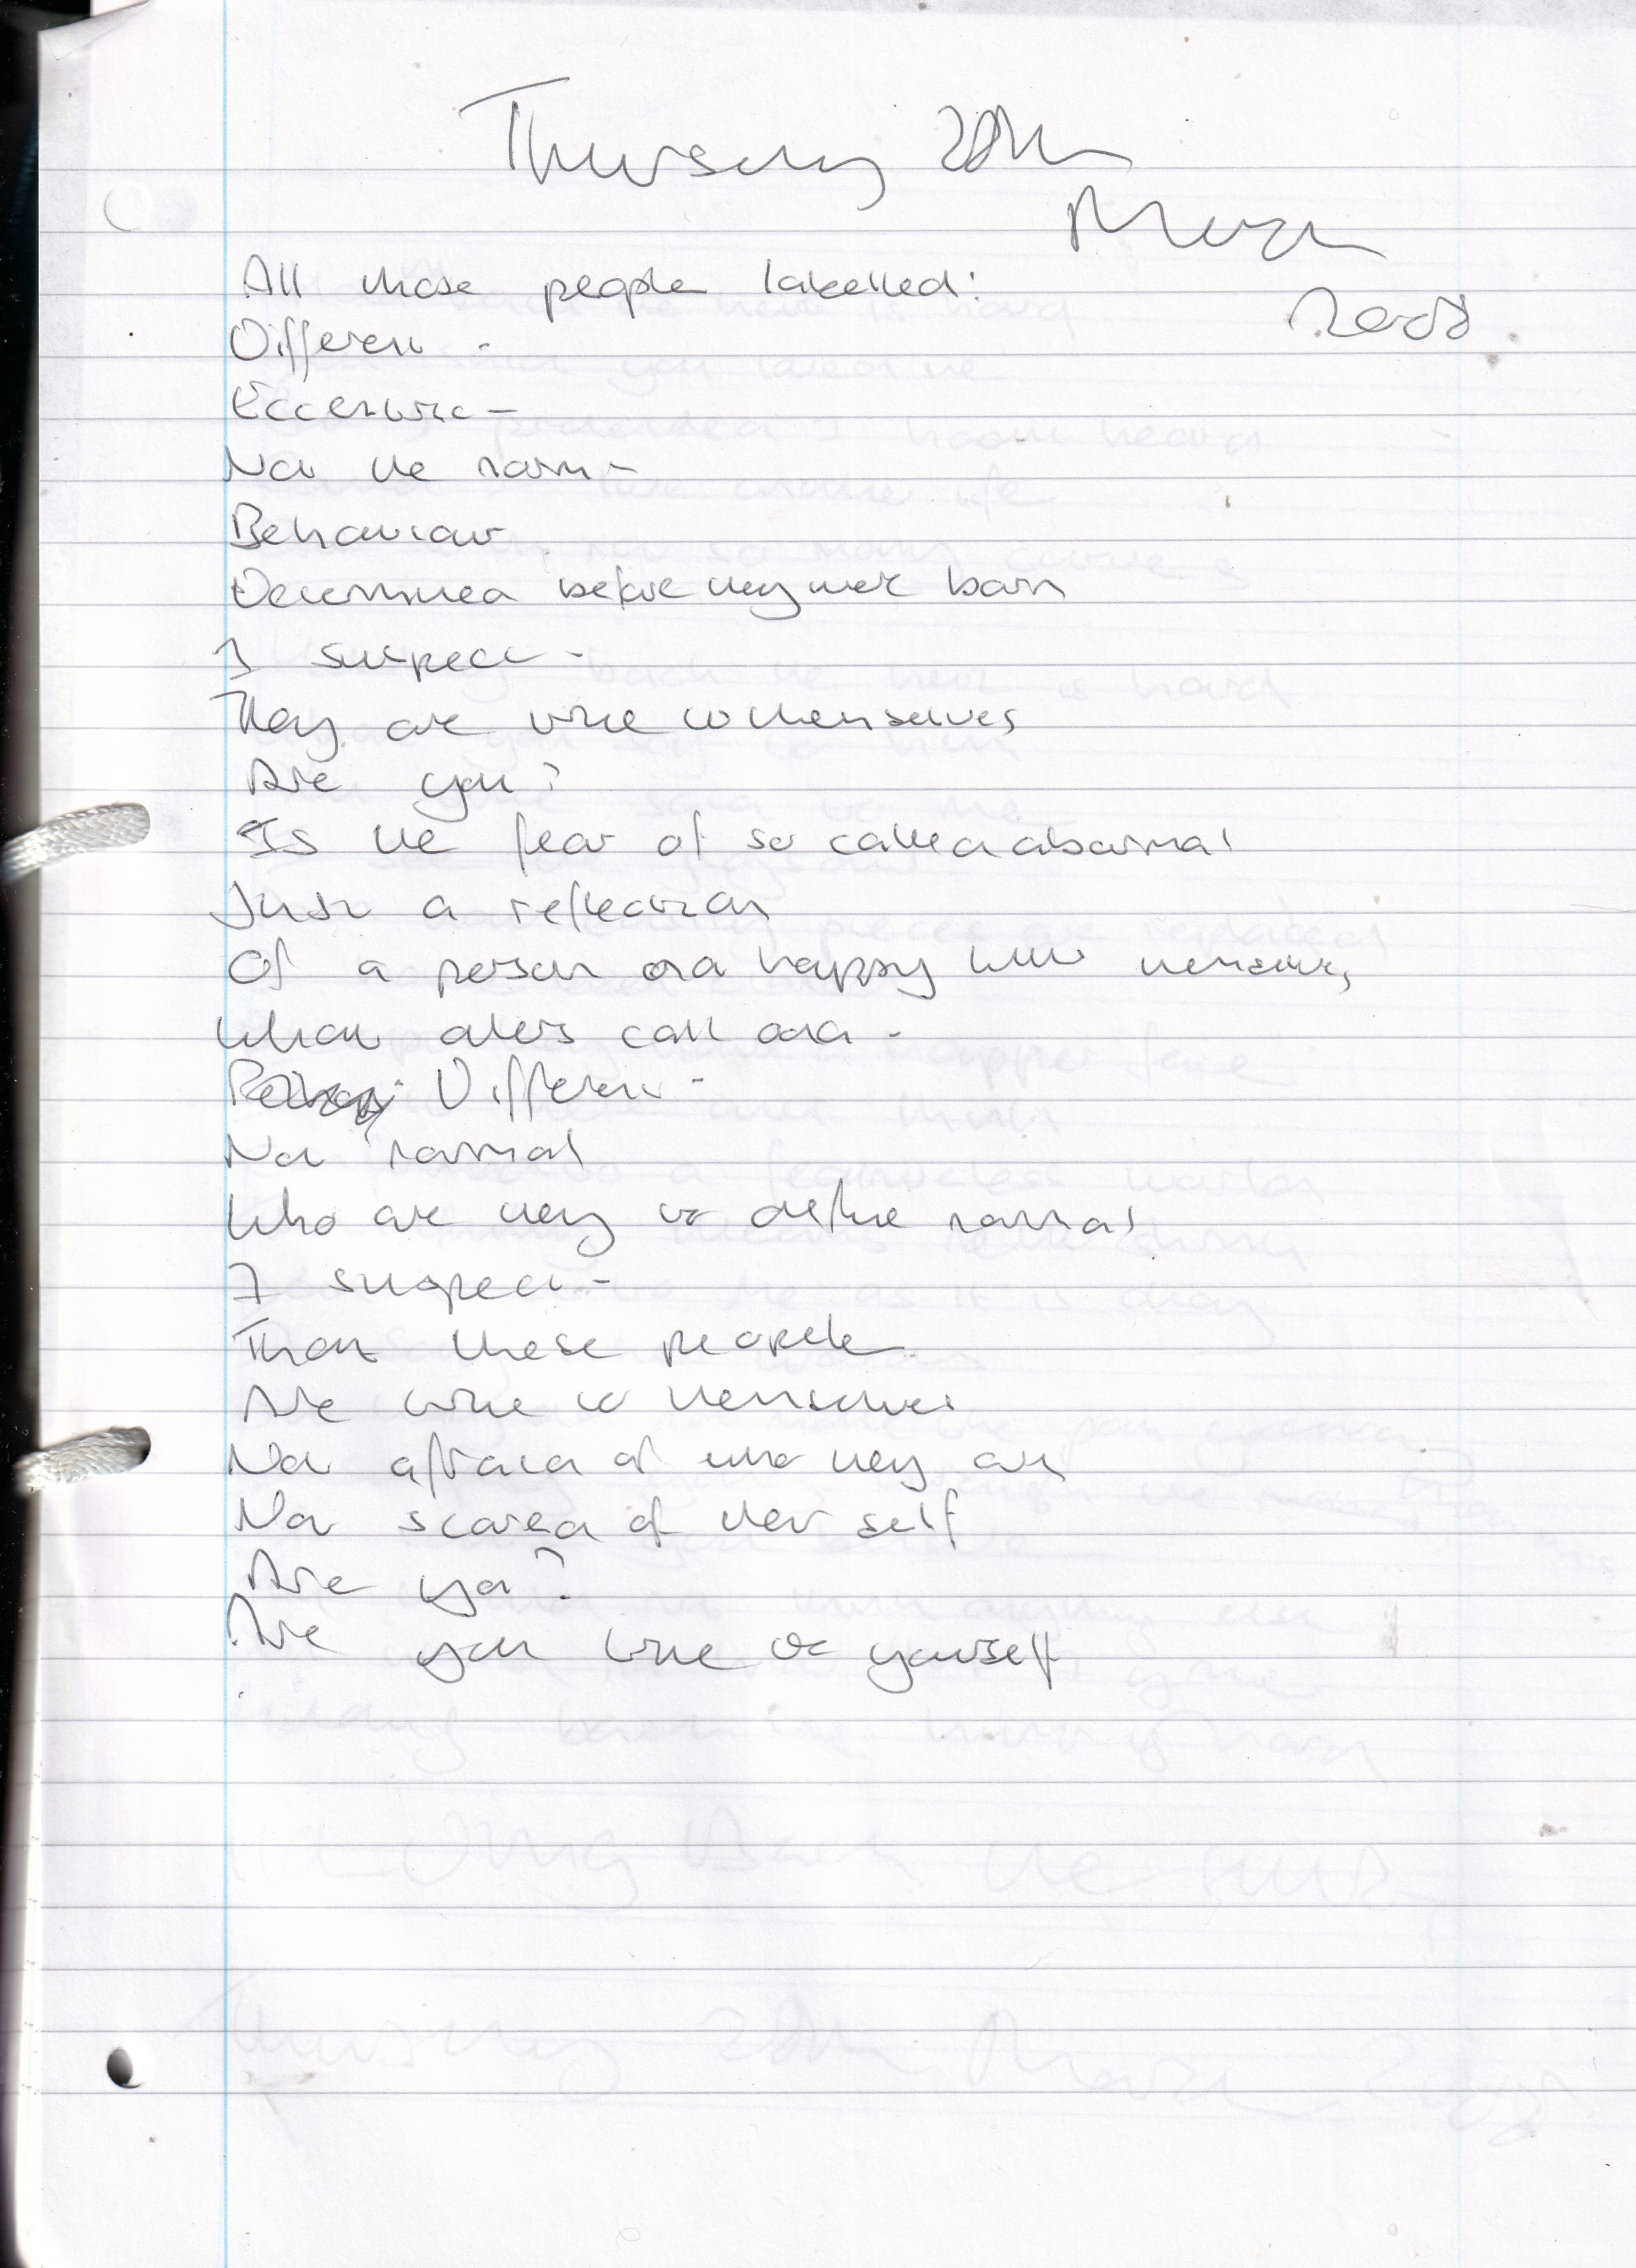 Thursday 20th
March
2008
All those people labelled:
Different -
Eccentric -
Not the norm -
Behaviour
Determined before they were born
I suspect -
They are true to themselves
Are you?
Is the fear of so called abnormal
Just a reflection
Of a person odd happy with themselves,
What others call odd -
Different -
Not normal
Who are they to define normal
I suspect -
That these people
Are true to themselves
Not afraid of who they are
Not scared of their self
Are you?
Are you true to yourself